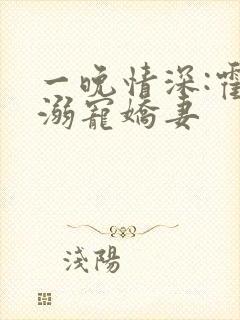 一晚情深:霍
溺寵嬌妻
淺陽